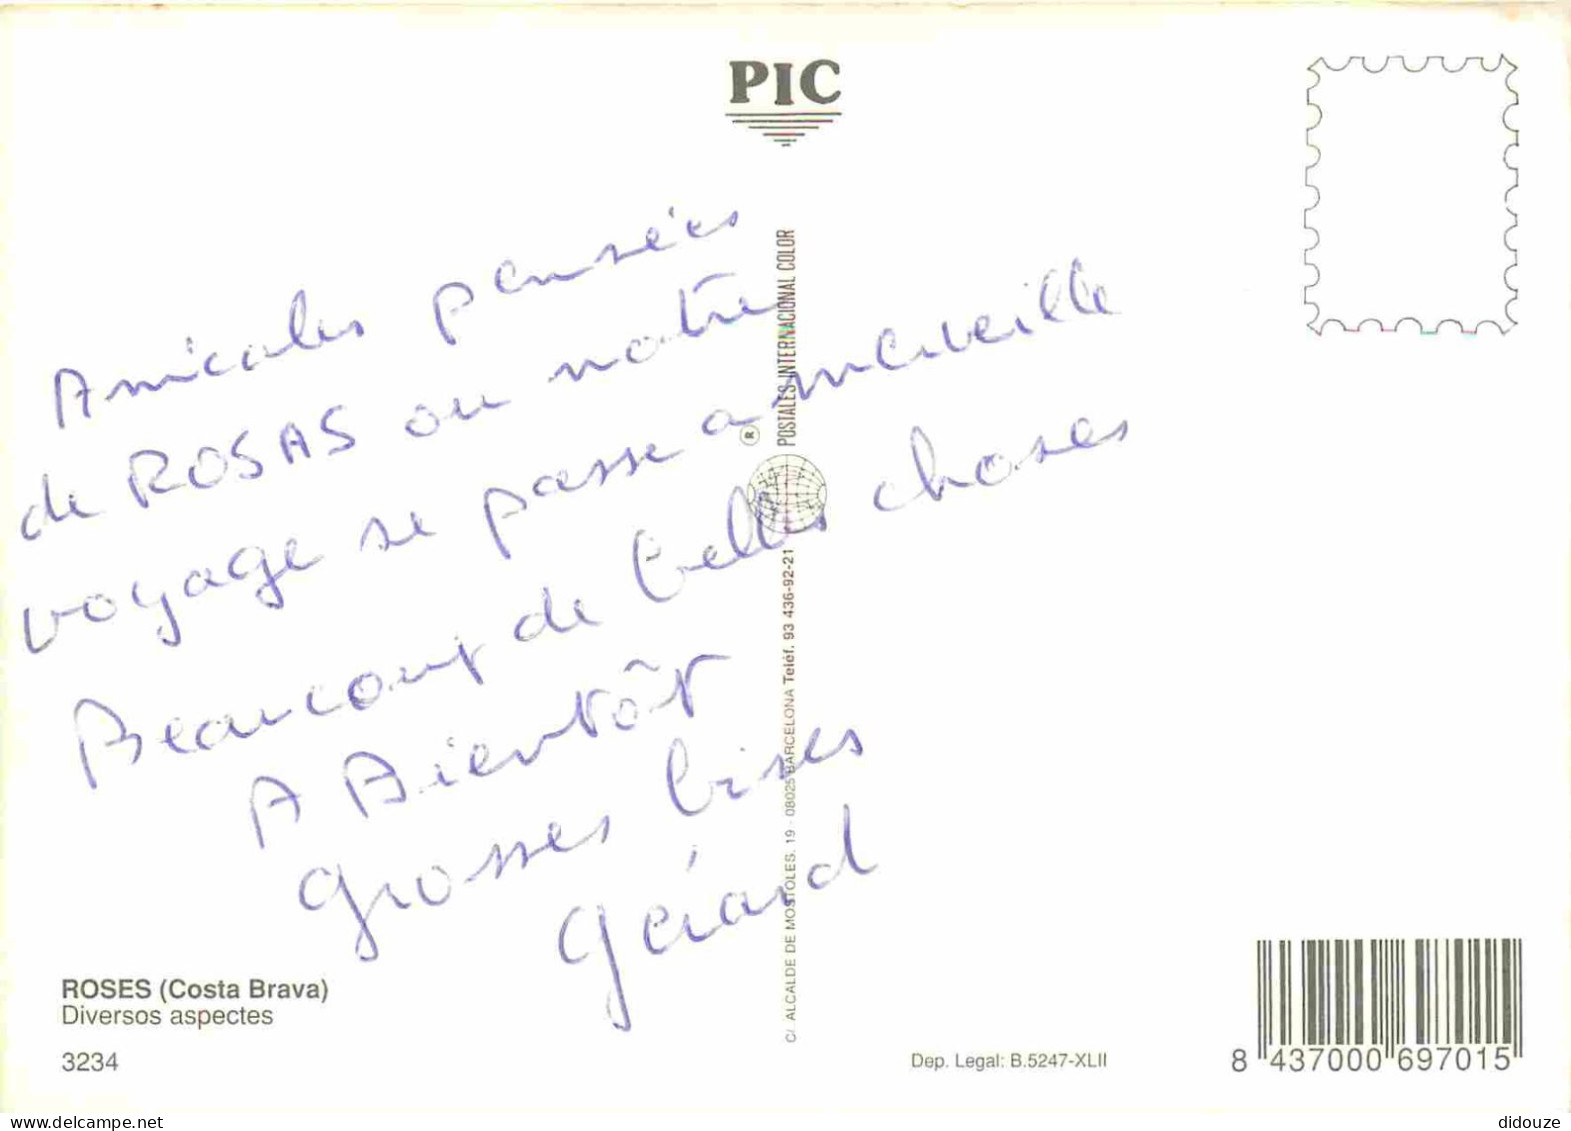 PIC
Amicales pensées
de ROSAS ou notre
voyage se passe a merveille
Beaucoup de belles choses
A Bientôt
grosses bises
Gérard
® POSTALES INTERNACIONAL COLOR
C/ ALCALDE DE MOSTOLES, 19 - 08025 BARCELONA Teléf. 93 436-92-21
ROSES (Costa Brava)
Diversos aspectes
3234
Dep. Legal: B.5247-XLII
8 437000 697015
didouze